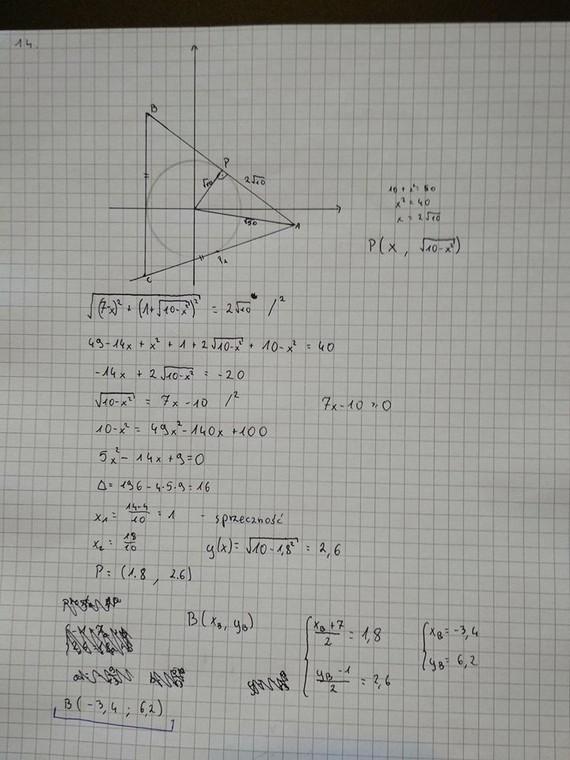 14.
B
P
√10
2√10
√50
A
C
10 + x² = 50
x² = 40
x = 2√10
P(x, √(10-x²))
√((7-x)² + (1+√(10-x²))²) = 2√10 /²
49-14x + x² + 1 + 2√(10-x²) + 10-x² = 40
-14x + 2√(10-x²) = -20
√(10-x²) = 7x-10 /² 7x-10 ≥ 0
10-x² = 49x²-140x+100
5x²-14x+9=0
Δ= 196-4·5·9 = 16
x₁ = (14-4)/10 = 1 - sprzeczność
x₂ = 18/10 y(x) = √(10-1,8²) = 2,6
P = (1.8, 2.6)
B(x_B, y_B) { (x_B+7)/2 = 1,8 { x_B = -3,4
(y_B-1)/2 = 2,6 y_B = 6,2
B(-3,4 ; 6,2)